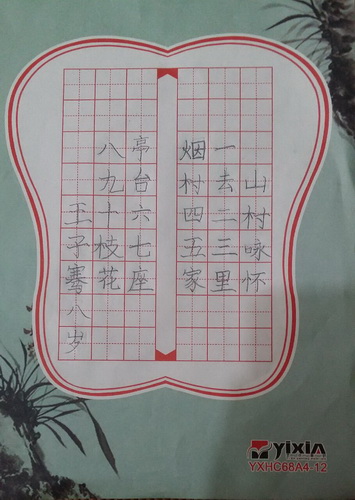 山村咏怀
一去二三里
烟村四五家
亭台六七座
八九十枝花
王子骞八岁
YIXIN
YXHC68A4-12